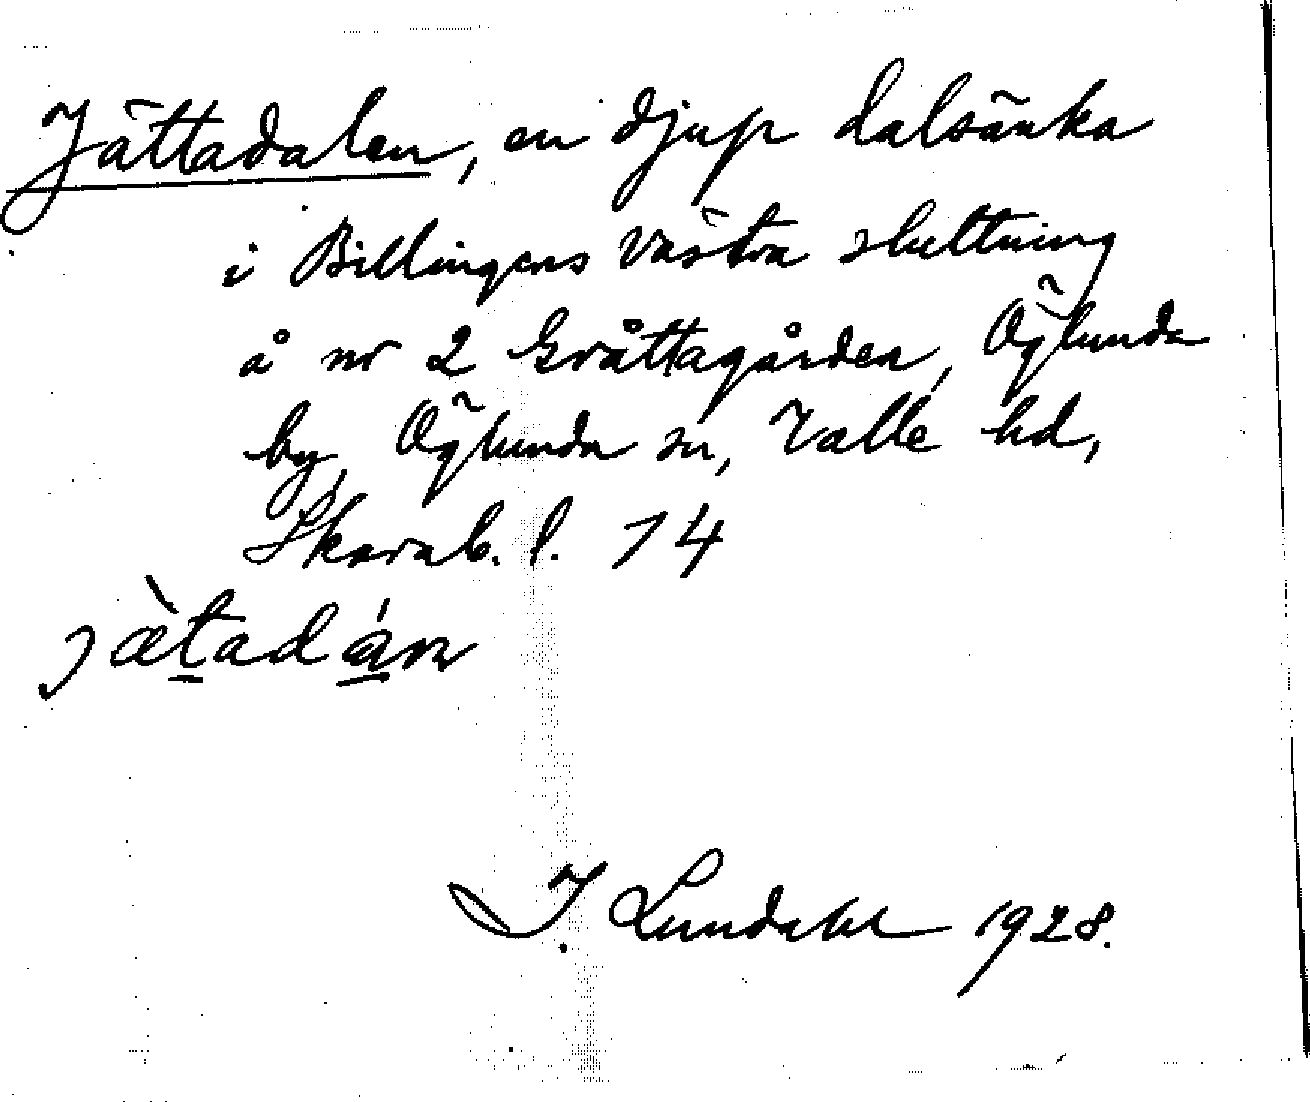 Jättadalen, en djup dalsänka
i Billingens västra sluttning
å nr 2 Gråttagården, Öglunda
by, Öglunda sn, Valle hd,
Skarab. l. 14
jætadán
I Lundahl 1928.